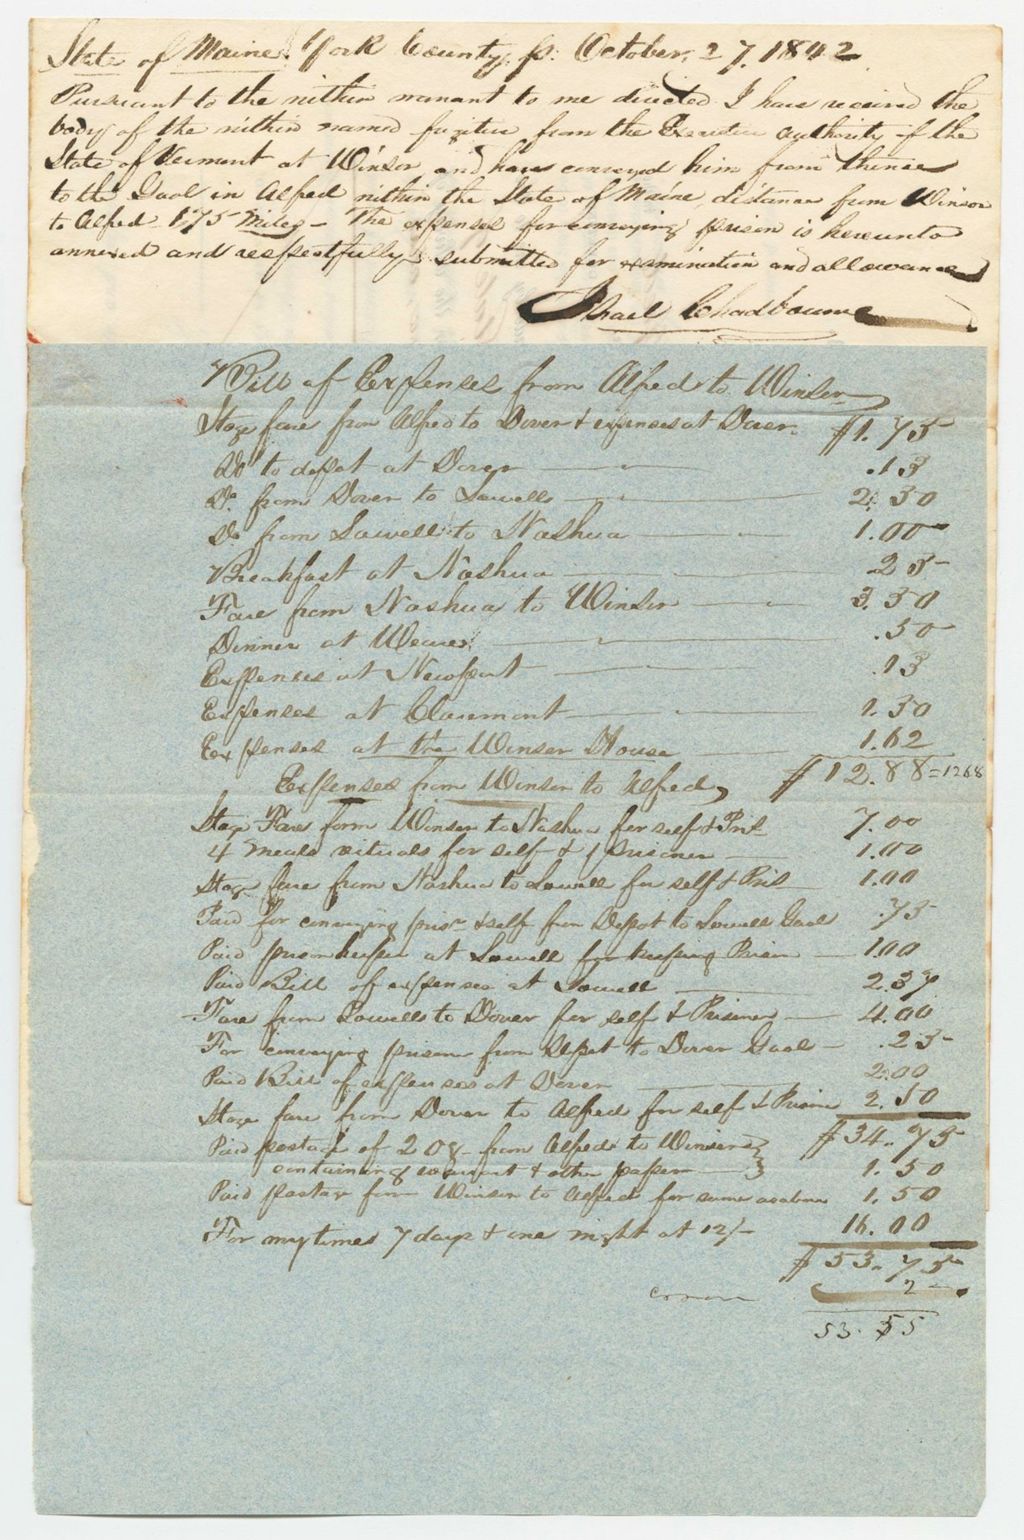 State of Maine. York County, ss: October, 27, 1842
Pursuant to the within warrant to me directed I have received the
body of the within named fugitive from the Executive authority of the
State of Vermont at Winsor and have conveyed him from thence
to the Gaol in Alfred within the State of Maine, distance from Winsor
to Alfred 175 Miles - The expenses for conveying prison is hereunto
annexed and respectfully submitted for examination and allowance
Ishael Chadbourne
Bill of Expenses from Alfred to Winser
Stage fare from Alfred to Dover & expenses at Dover. $1.75
Do to depot at Dover .13
Do. from Dover to Lowells 2.50
Do from Lowell to Nashua 1.00
Breakfast at Nashua 25
Fare from Nashua to Winser 3.50
Dinner at Weare .50
Expenses at Newport .13
Expenses at Claremont 1.50
Expenses at the Winser House 1.62
$12.88 = 1288
Expenses from Winser to Alfred,
Stage Fare form Winser to Nashua for self & Pris 7.00
4 meals vituals for self & 1 prisoner 1.00
Stage fare from Nashua to Lowell for self & Pris 1.00
Paid for conveying prisr & self from Depot to Lowell Gaol .75
Paid prisonkeeper at Lowell for keeping Prison 1.00
Paid Bill of expenses at Lowell 2.37
Fare from Lowells to Dover for self & Prisoner 4.00
For conveying prisoner from Depot to Dover Gaol .25
Paid Bill of expenses at Dover 2.00
Stage fare from Dover to Alfred for self & Prison 2.50
$34.75
Paid postage of 2 oz from Alfred to Winser
containing warrant & other papper 1.50
Paid postage from Winser to Alfred for same as above 1.50
For my times 7 days & one night at 12/- 16.00
$53.75
2
53.55